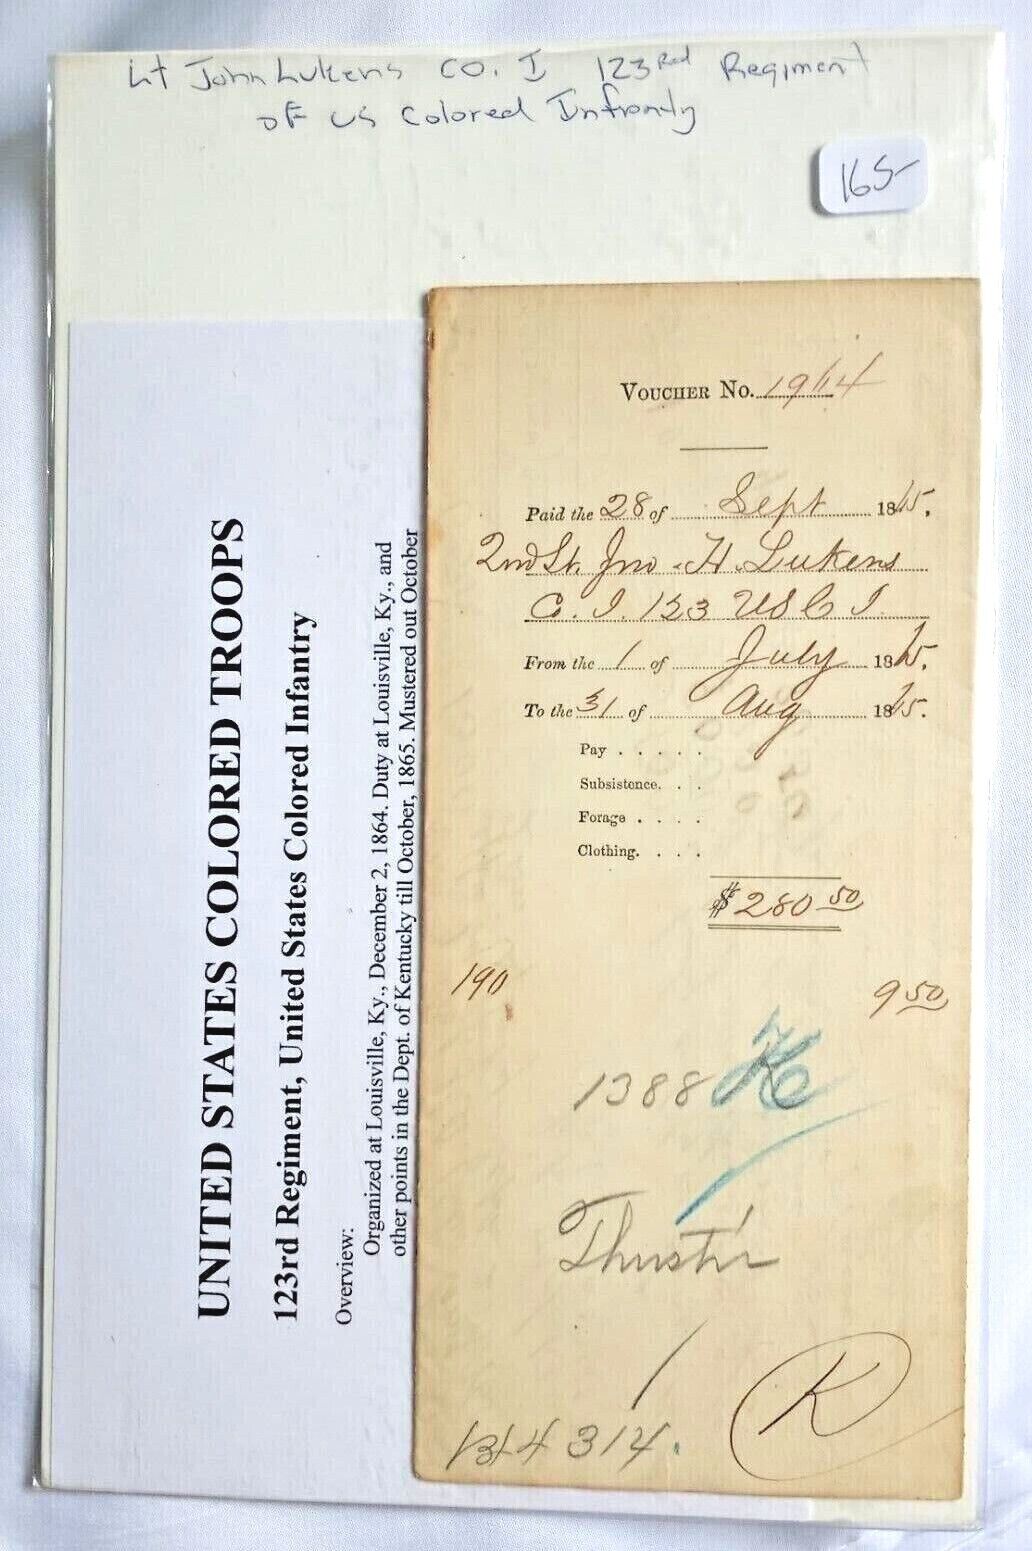 Lt John Lukens CO. I 123rd Regiment
OF US Colored Infrantry
165-
UNITED STATES COLORED TROOPS
123rd Regiment, United States Colored Infantry
Overview:
Organized at Louisville, Ky., December 2, 1864. Duty at Louisville, Ky., and
other points in the Dept. of Kentucky till October, 1865. Mustered out October
VOUCHER No.
Paid the 28 of Sept 1865.
2nd Lt. Jno. H. Lukens
C. I. 123 USCI
From the 1 of July 1865.
To the 31 of Aug 1865.
Pay . . . . .
Subsistence. . .
Forage . . . .
Clothing. . . .
$280 50
190
9 50
1388
K
314.